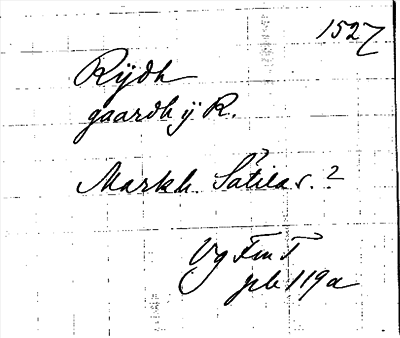 1527
Rÿdh
gaardh ÿ R.
Markh. Sätila s. ?
Vg Fm T
pb 119a